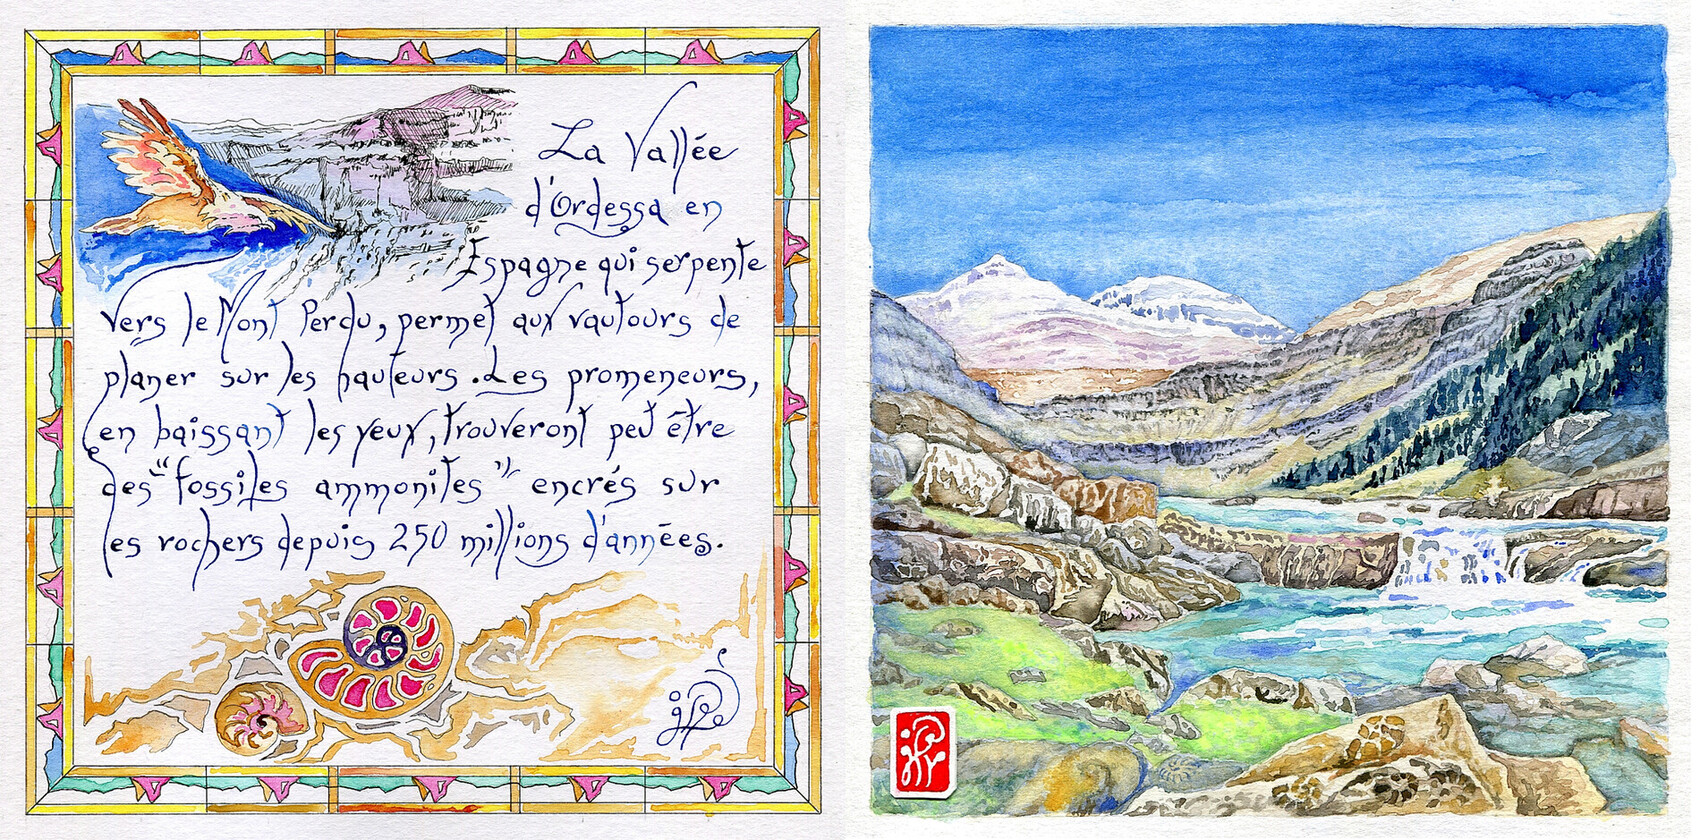 La Vallée
d'Ordessa en
Espagne qui serpente
vers le Mont Perdu, permet aux vautours de
planer sur les hauteurs. Les promeneurs,
en baissant les yeux, trouveront peut être
des "fossiles ammonites" encrés sur
les rochers depuis 250 millions d'années.